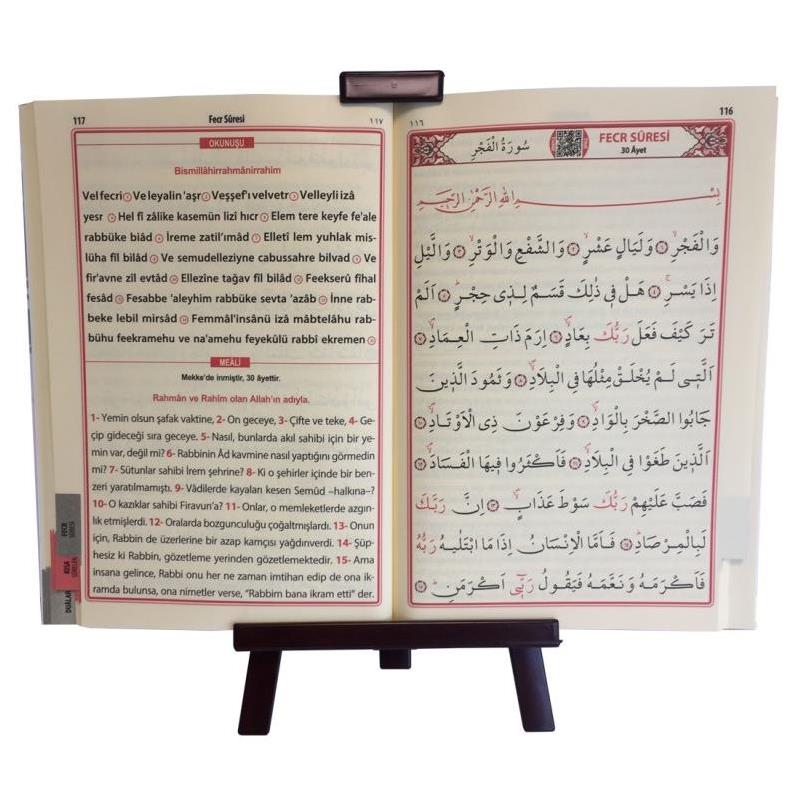 117 Fecr Sûresi ١١٧
OKUNUŞU
Bismillâhirrahmânirrahim
Vel fecri ① Ve leyalin 'aşr ② Veşşef'ı velvetr ③ Velleyli izâ
yesr ④ Hel fî zâlike kasemün lizî hıcr ⑤ Elem tere keyfe fe'ale
rabbüke biâd ⑥ İreme zatil'ımâd ⑦ Elletî lem yuhlak mis-
lüha fîl bilâd ⑧ Ve semudelleziyne cabussahre bilvad ⑨ Ve
fir'avne zîl evtâd ⑩ Ellezîne tağav fîl bilâd ⑪ Feekserû fîhal
fesâd ⑫ Fesabbe 'aleyhim rabbüke sevta 'azâb ⑬ İnne rab-
beke lebil mirsâd ⑭ Femmâl'insânü izâ mâbtelâhu rab-
bühu feekramehu ve na'amehu feyekûlü rabbî ekremen ⑮
MEÂLİ
Mekke'de inmiştir, 30 âyettir.
Rahmân ve Rahîm olan Allah'ın adıyla.
1- Yemin olsun şafak vaktine, 2- On geceye, 3- Çifte ve teke, 4- Ge-
çip gideceği sıra geceye. 5- Nasıl, bunlarda akıl sahibi için bir ye-
min var, değil mi? 6- Rabbinin Âd kavmine nasıl yaptığını görmedin
mi? 7- Sütunlar sahibi İrem şehrine? 8- Ki o şehirler içinde bir ben-
zeri yaratılmamıştı. 9- Vâdilerde kayaları kesen Semûd –halkına-?
10- O kazıklar sahibi Firavun'a? 11- Onlar, o memleketlerde azgın-
lık etmişlerdi. 12- Oralarda bozgunculuğu çoğaltmışlardı. 13- Onun
için, Rabbin de üzerlerine bir azap kamçısı yağdırıverdi. 14- Şüp-
hesiz ki Rabbin, gözetleme yerinden gözetlemektedir. 15- Ama
insana gelince, Rabbi onu her ne zaman imtihan edip de ona ik-
ramda bulunsa, ona nimetler verse, "Rabbim bana ikram etti" der.
FECR
SÛRESİ
KISA
SÛRELER
DUALAR
١١٦ 116
سُورَةُ الْفَجْرِ FECR SÛRESİ
30 Âyet
بِسْمِ اللهِ الرَّحْمٰنِ الرَّحِيمِ
وَالْفَجْرِۙ ﴿١﴾ وَلَيَالٍ عَشْرٍۙ ﴿٢﴾ وَالشَّفْعِ وَالْوَتْرِۙ ﴿٣﴾ وَالَّيْلِ
اِذَا يَسْرِۚ ﴿٤﴾ هَلْ فٖى ذٰلِكَ قَسَمٌ لِذٖى حِجْرٍؕ ﴿٥﴾ اَلَمْ
تَرَ كَيْفَ فَعَلَ رَبُّكَ بِعَادٍۙ ﴿٦﴾ اِرَمَ ذَاتِ الْعِمَادِۙ ﴿٧﴾
اَلَّتٖى لَمْ يُخْلَقْ مِثْلُهَا فِى الْبِلَادِۙ ﴿٨﴾ وَثَمُودَ الَّذٖينَ
جَابُوا الصَّخْرَ بِالْوَادِۙ ﴿٩﴾ وَفِرْعَوْنَ ذِى الْاَوْتَادِۙ ﴿١٠﴾
اَلَّذٖينَ طَغَوْا فِى الْبِلَادِۙ ﴿١١﴾ فَاَكْثَرُوا فٖيهَا الْفَسَادَۙ ﴿١٢﴾
فَصَبَّ عَلَيْهِمْ رَبُّكَ سَوْطَ عَذَابٍۚ ﴿١٣﴾ اِنَّ رَبَّكَ
لَبِالْمِرْصَادِؕ ﴿١٤﴾ فَاَمَّا الْاِنْسَانُ اِذَا مَا ابْتَلٰيهُ رَبُّهُ
فَاَكْرَمَهُ وَنَعَّمَهُ فَيَقُولُ رَبّٖى اَكْرَمَنِؕ ﴿١٥﴾